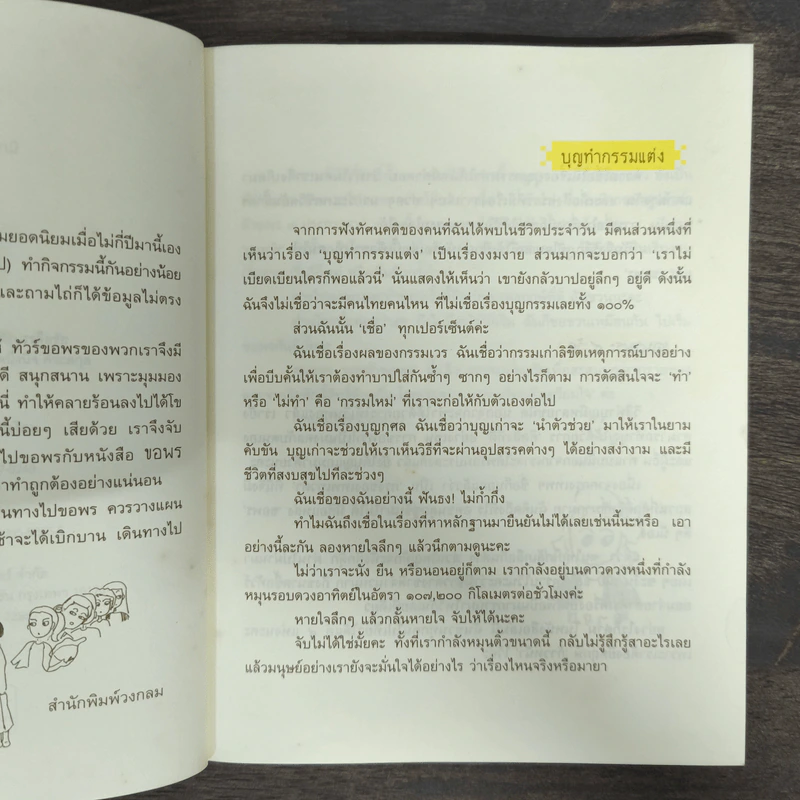 มยอดนิยมเมื่อไม่กี่ปีมานี้เอง
ป) ทำกิจกรรมนี้กันอย่างน้อย
และถามไถ่ก็ได้ข้อมูลไม่ตรง
ทัวร์ขอพรของพวกเราจึงมี
ดี สนุกสนาน เพราะมุมมอง
นี่ ทำให้คลายร้อนลงไปได้โข
นี้บ่อยๆ เสียด้วย เราจึงจับ
ไปขอพรกับหนังสือ ขอพร
าทำถูกต้องอย่างแน่นอน
นทางไปขอพร ควรวางแผน
ช้าจะได้เบิกบาน เดินทางไป
สำนักพิมพ์วงกลม
บุญทำกรรมแต่ง
จากการฟังทัศนคติของคนที่ฉันได้พบในชีวิตประจำวัน มีคนส่วนหนึ่งที่
เห็นว่าเรื่อง 'บุญทำกรรมแต่ง' เป็นเรื่องงมงาย ส่วนมากจะบอกว่า 'เราไม่
เบียดเบียนใครก็พอแล้วนี่' นั่นแสดงให้เห็นว่า เขายังกลัวบาปอยู่ลึกๆ อยู่ดี ดังนั้น
ฉันจึงไม่เชื่อว่าจะมีคนไทยคนไหน ที่ไม่เชื่อเรื่องบุญกรรมเลยทั้ง ๑๐๐%
ส่วนฉันนั้น 'เชื่อ' ทุกเปอร์เซ็นต์ค่ะ
ฉันเชื่อเรื่องผลของกรรมเวร ฉันเชื่อว่ากรรมเก่าลิขิตเหตุการณ์บางอย่าง
เพื่อบีบคั้นให้เราต้องทำบาปใส่กันซ้ำๆ ซากๆ อย่างไรก็ตาม การตัดสินใจจะ 'ทำ'
หรือ 'ไม่ทำ' คือ 'กรรมใหม่' ที่เราจะก่อให้กับตัวเองต่อไป
ฉันเชื่อเรื่องบุญกุศล ฉันเชื่อว่าบุญเก่าจะ 'นำตัวช่วย' มาให้เราในยาม
คับขัน บุญเก่าจะช่วยให้เราเห็นวิธีที่จะผ่านอุปสรรคต่างๆ ได้อย่างสง่างาม และมี
ชีวิตที่สงบสุขไปทีละช่วงๆ
ฉันเชื่อของฉันอย่างนี้ ฟันธง! ไม่ก้ำกึ่ง
ทำไมฉันถึงเชื่อในเรื่องที่หาหลักฐานมายืนยันไม่ได้เลยเช่นนี้นะหรือ เอา
อย่างนี้ละกัน ลองหายใจลึกๆ แล้วนึกตามดูนะคะ
ไม่ว่าเราจะนั่ง ยืน หรือนอนอยู่ก็ตาม เรากำลังอยู่บนดาวดวงหนึ่งที่กำลัง
หมุนรอบดวงอาทิตย์ในอัตรา ๑๐๗,๒๐๐ กิโลเมตรต่อชั่วโมงค่ะ
หายใจลึกๆ แล้วกลั้นหายใจ จับให้ได้นะคะ
จับไม่ได้ใช่มั้ยคะ ทั้งที่เรากำลังหมุนติ้วขนาดนี้ กลับไม่รู้สึกรู้สาอะไรเลย
แล้วมนุษย์อย่างเรายังจะมั่นใจได้อย่างไร ว่าเรื่องไหนจริงหรือมายา